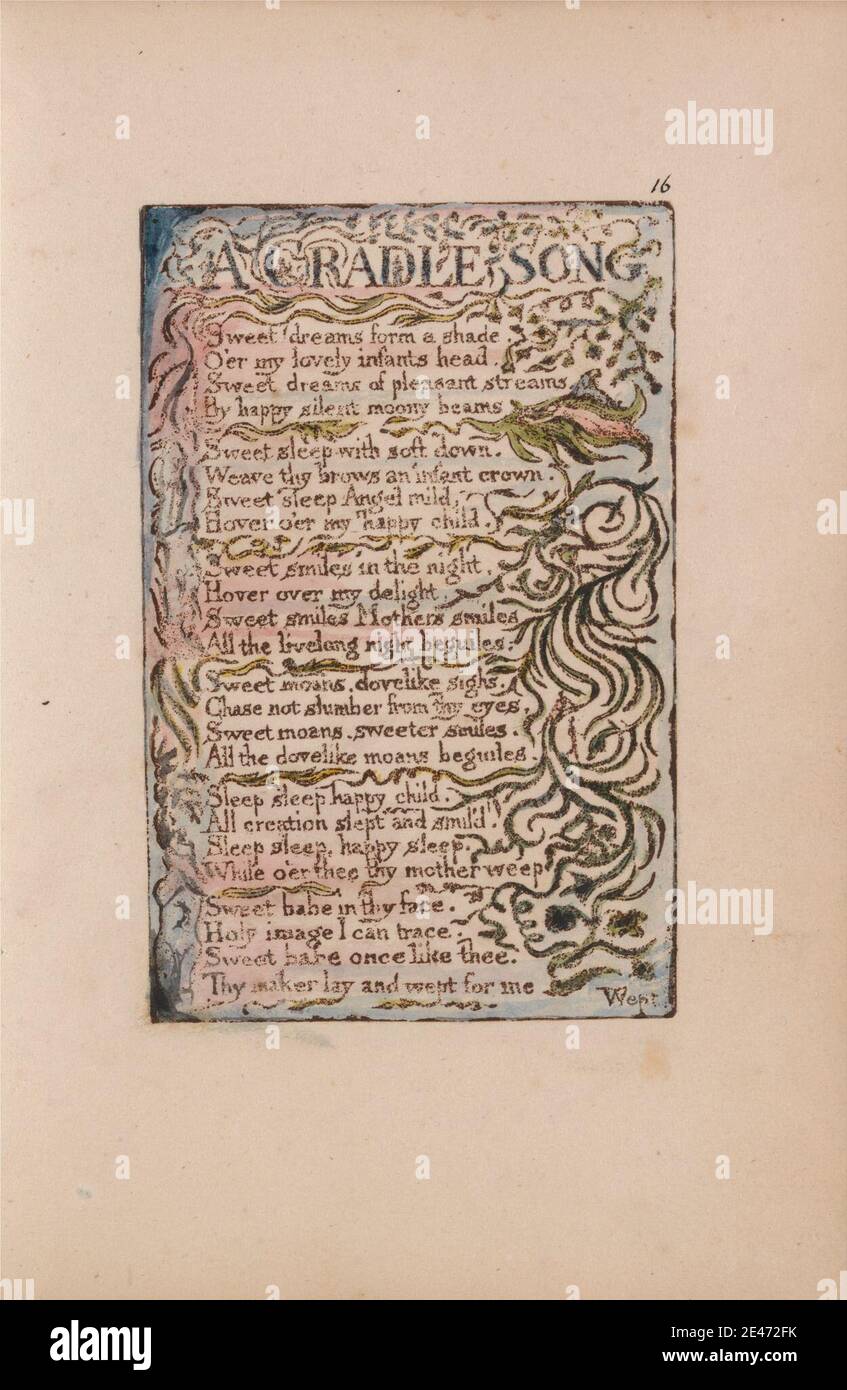 16
A CRADLE SONG
Sweet dreams form a shade
O'er my lovely infants head.
Sweet dreams of pleasant streams
By happy silent moony beams
Sweet sleep with soft down.
Weave thy brows an infant crown.
Sweet sleep Angel mild,
Hover o'er my happy child.
Sweet smiles in the night,
Hover over my delight.
Sweet smiles Mothers smiles
All the livelong night beguiles.
Sweet moans, dovelike sighs,
Chase not slumber from thy eyes,
Sweet moans, sweeter smiles,
All the dovelike moans beguiles.
Sleep sleep happy child.
All creation slept and smil'd.
Sleep sleep, happy sleep,
While o'er thee thy mother weep
Sweet babe in thy face,
Holy image I can trace.
Sweet babe once like thee,
Thy maker lay and wept for me
Wept
a alamy
alamy
Image ID: 2E472FK
www.alamy.com